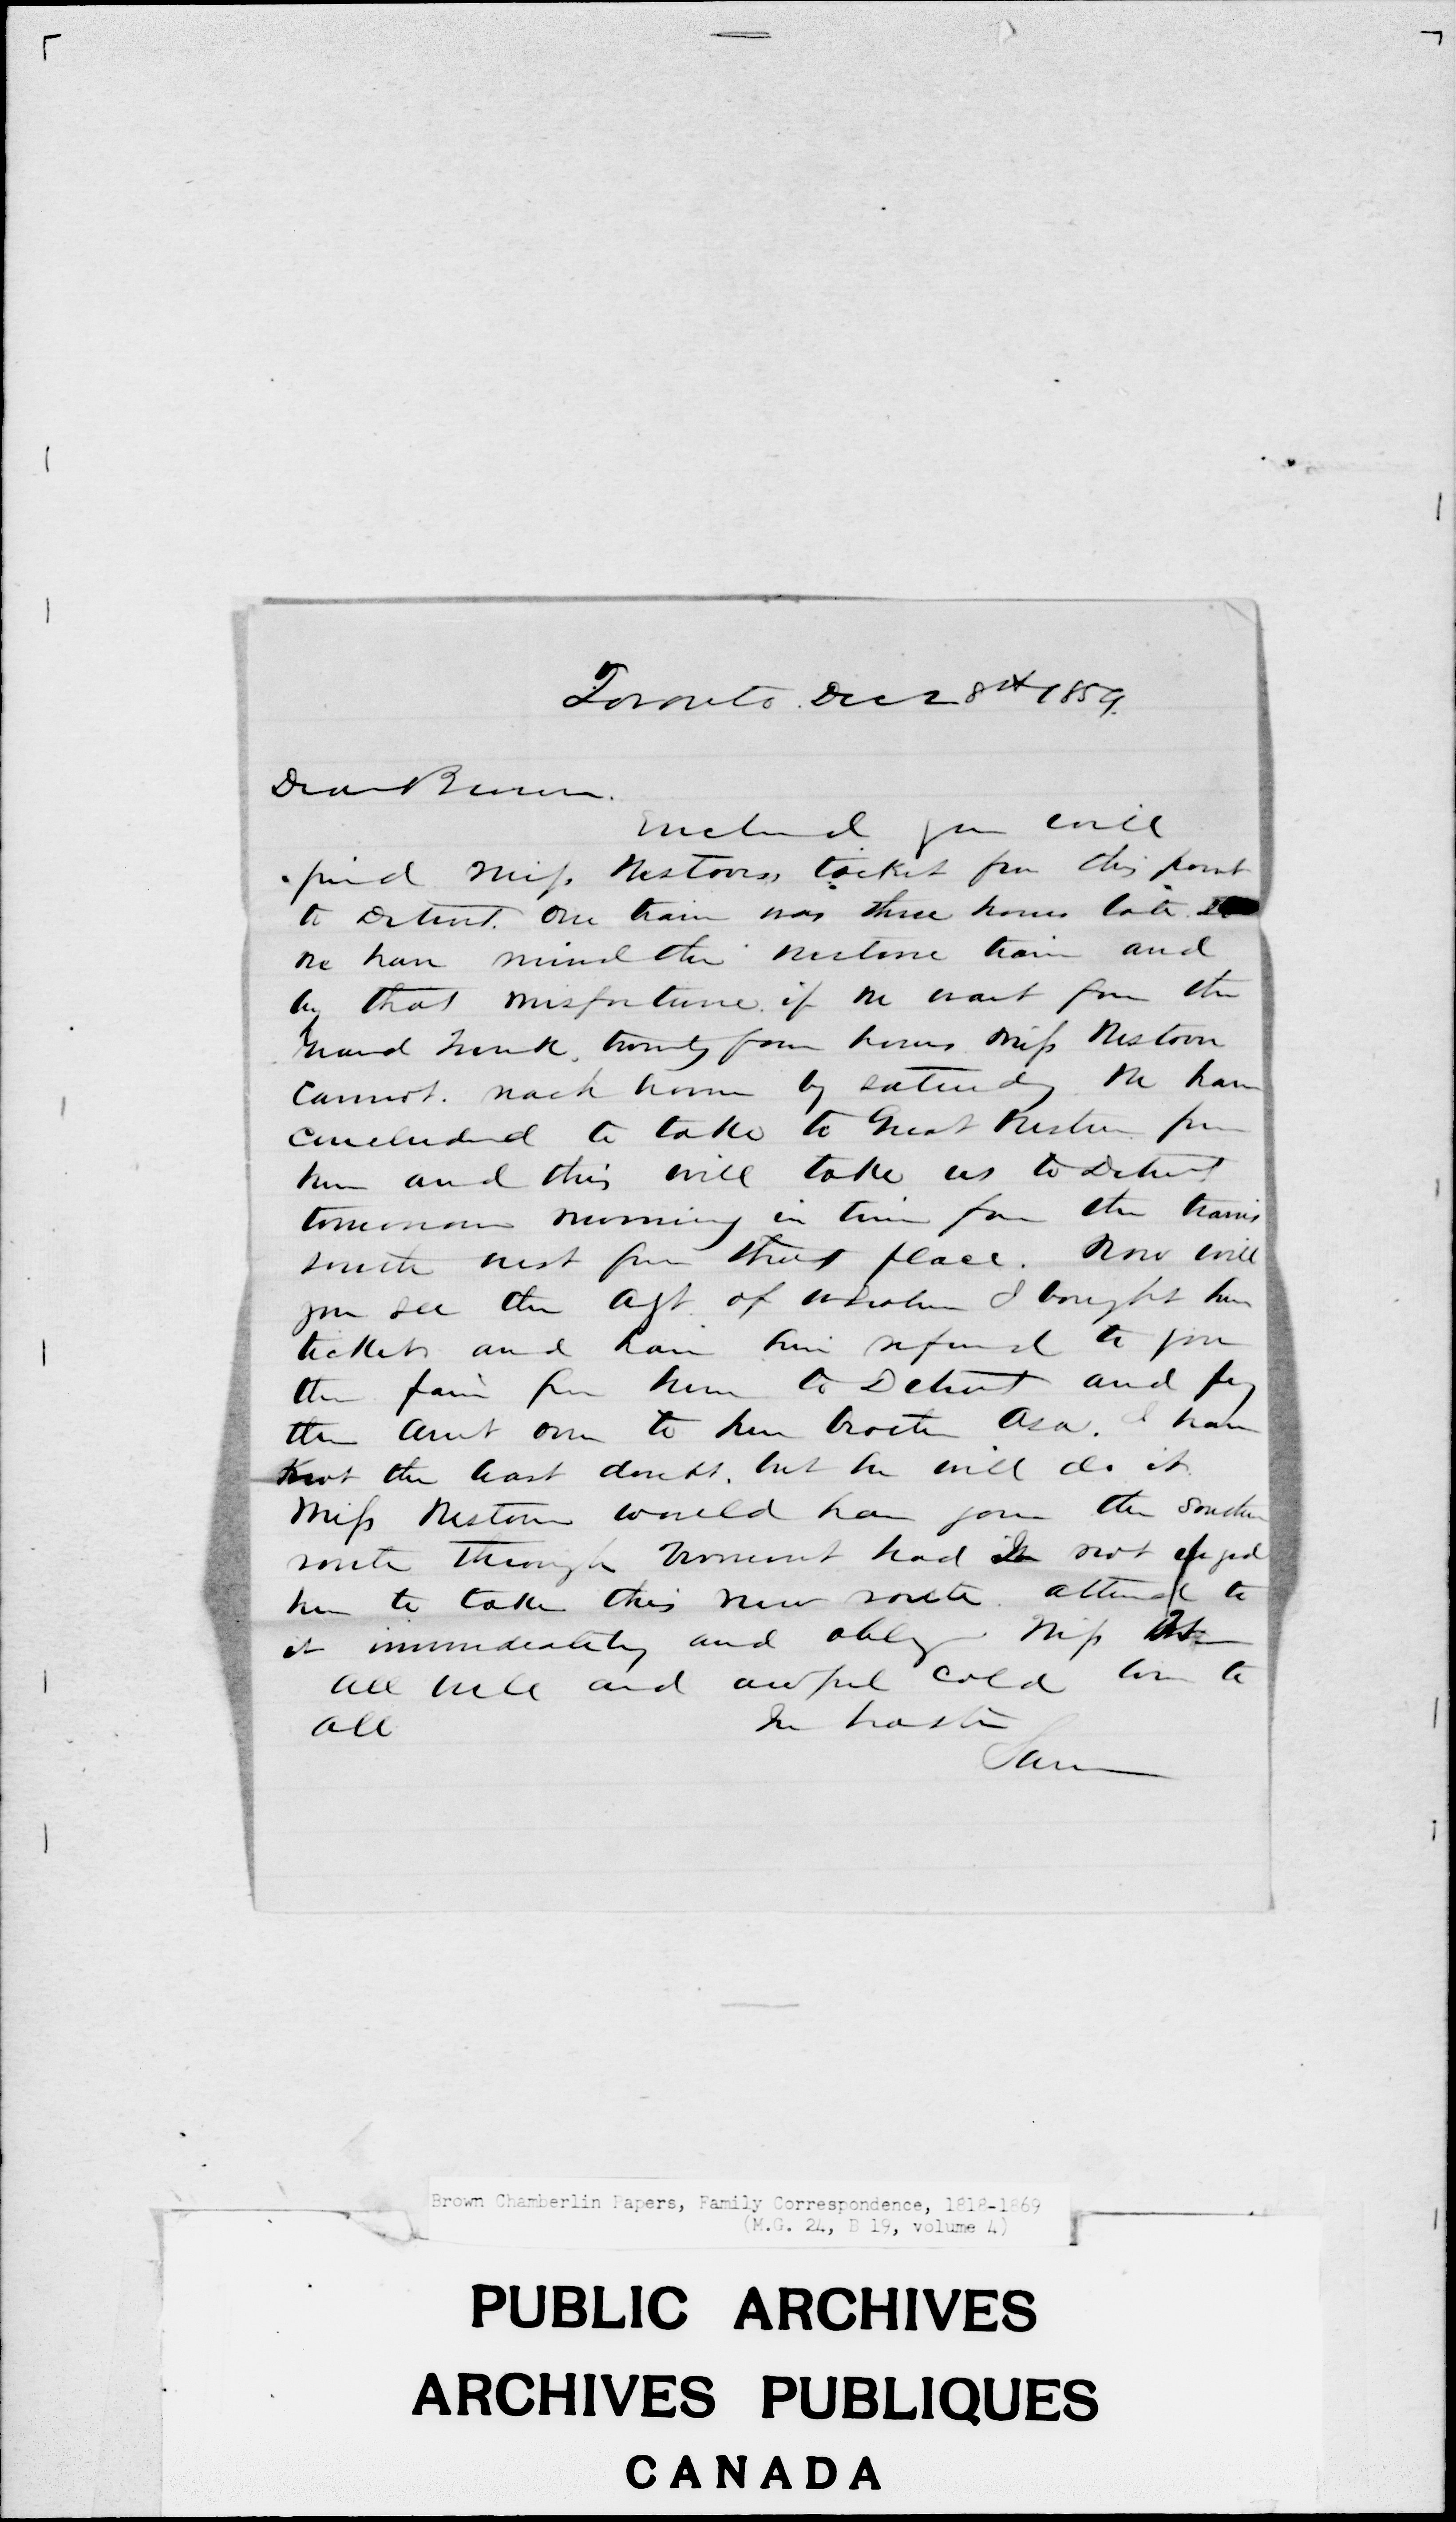 Toronto. Dec 28th 1859.
Dear Brown.
Enclosed you will
find Miss Westovers ticket from this point
to Detroit. Our train was three hours late
We have missed the western train and
by that misfortune if we wait for the
Grand Trunk, twenty four hours Miss Westover
cannot. reach home by saturday We have
concluded to take to Great Western from
here and this will take us to Detroit
tomorrow morning in time for the trains
south west from that place. Now will
you see the Agt. of whom I bought her
tickets and have him refund to you
the fair from here to Detroit and pay
the amt over to her brother Asa. I have
not the least doubt. but he will do it
Miss Westover would have gone the southern
route through Vermont had not
her to take this new route. attend to
it immediately and oblige Miss
All well and awful cold love to
all In haste
Sam
Brown Chamberlin Papers, Family Correspondence, 1818-1869
(M.G. 24, B 19, volume 4)
PUBLIC ARCHIVES
ARCHIVES PUBLIQUES
CANADA